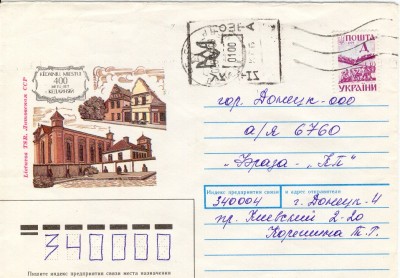 KĖDAINIŲ MIESTUI
400
ЛЕТ КЕДАЙНЯЙ
Lietuvos TSR. Литовская ССР
01.00
ПОШТА
А
УКРАЇНИ
гор. Донецк-000
а/я 6760
"Фраза-"КП"
Индекс предприятия связи и адрес отправителя
340004 г. Донецк-4
пр. Киевский 2-20
Корешина Т.Г.
340000
Пишите индекс предприятия связи места назначения